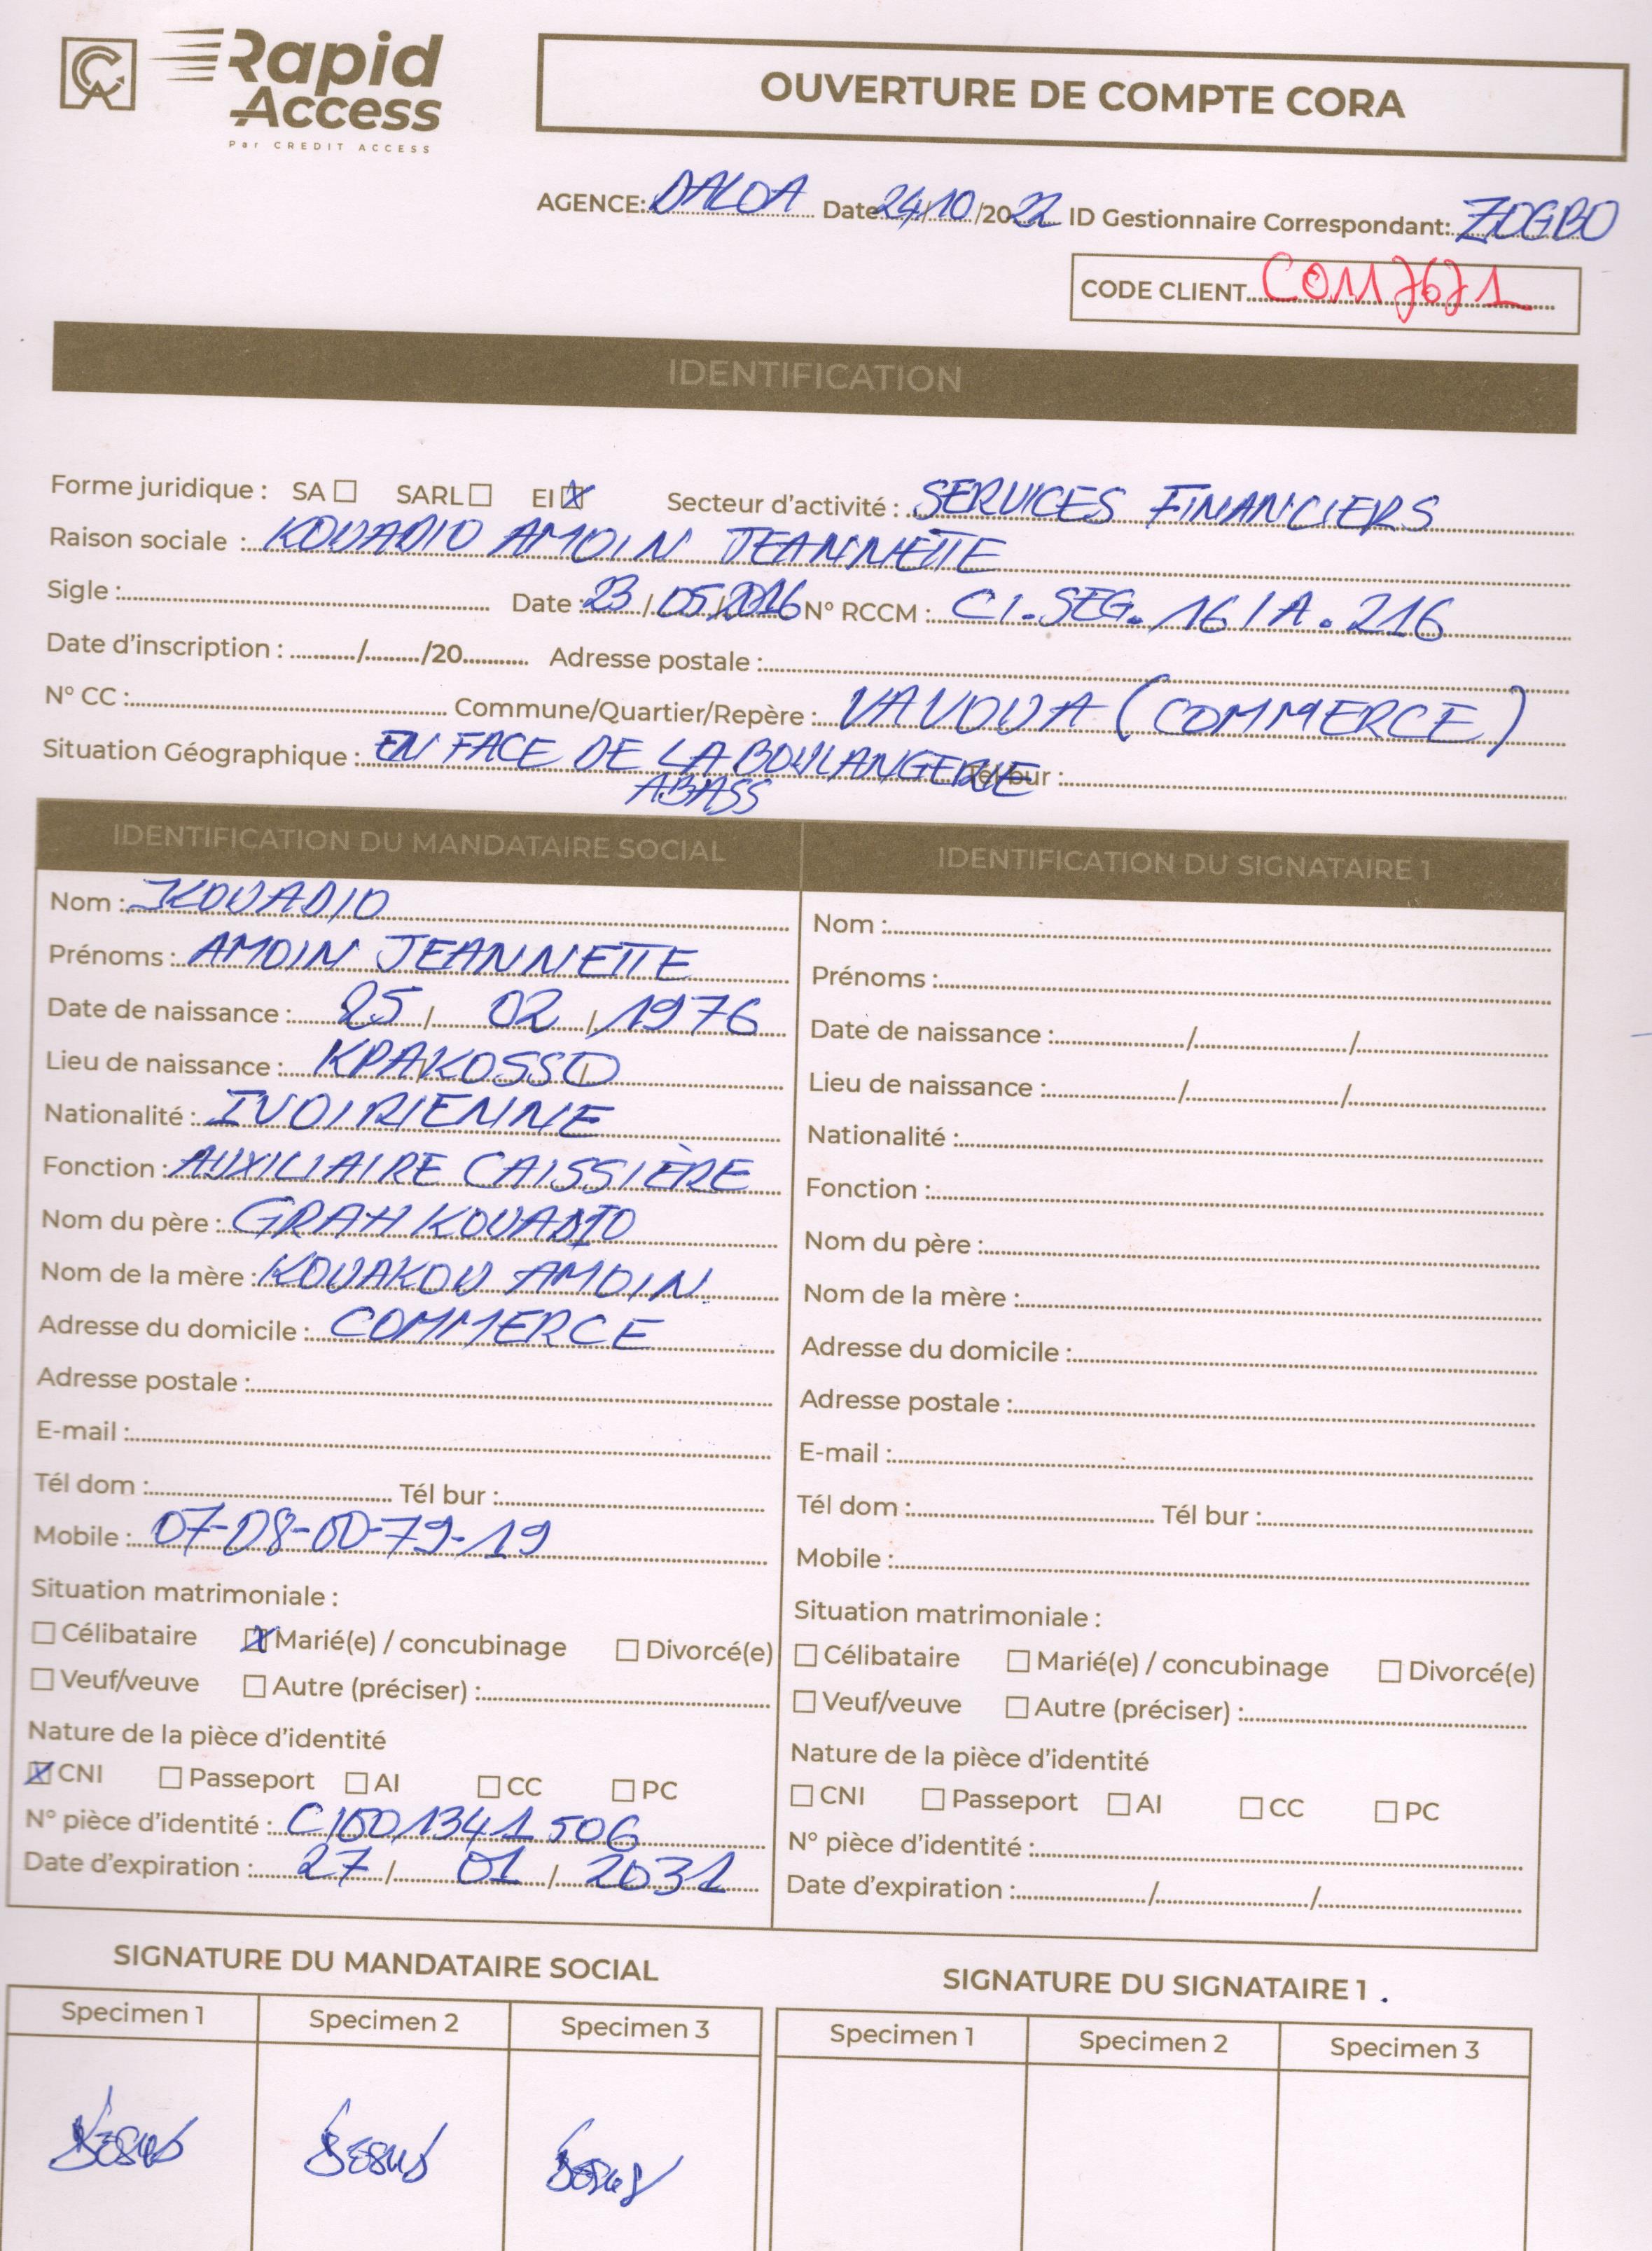 Rapid Access
Par CREDIT ACCESS
OUVERTURE DE COMPTE CORA
AGENCE: DALOA Date 24/10/2022 ID Gestionnaire Correspondant: ZOGBO
CODE CLIENT C0117671
IDENTIFICATION
Forme juridique : SA ☐ SARL ☐ EI ☒ Secteur d'activité : SERVICES FINANCIERS
Raison sociale : KOUADIO AMOIN JEANNETTE
Sigle : Date : 23/05/2016 N° RCCM : CI.SEG.16/A.216
Date d'inscription : ........../........./20........... Adresse postale :
N° CC : Commune/Quartier/Repère : VAVOUA (COMMERCE)
Situation Géographique : EN FACE DE LA BOULANGERIE Tél bur :
ABASS
IDENTIFICATION DU MANDATAIRE SOCIAL
Nom : KOUADIO
Prénoms : AMOIN JEANNETTE
Date de naissance : 25 / 02 / 1976
Lieu de naissance : KPAKOSSO
Nationalité : IVOIRIENNE
Fonction : AUXILIAIRE CAISSIÈRE
Nom du père : GRAH KOUADIO
Nom de la mère : KOUAKOU AMOIN
Adresse du domicile : COMMERCE
Adresse postale :
E-mail :
Tél dom : Tél bur :
Mobile : 07-08-00-79-19
Situation matrimoniale :
☐ Célibataire ☒ Marié(e) / concubinage ☐ Divorcé(e)
☐ Veuf/veuve ☐ Autre (préciser) :
Nature de la pièce d'identité
☒ CNI ☐ Passeport ☐ AI ☐ CC ☐ PC
N° pièce d'identité : CI001341506
Date d'expiration : 27 / 01 / 2031
IDENTIFICATION DU SIGNATAIRE 1
Nom :
Prénoms :
Date de naissance : / /
Lieu de naissance : / /
Nationalité :
Fonction :
Nom du père :
Nom de la mère :
Adresse du domicile :
Adresse postale :
E-mail :
Tél dom : Tél bur :
Mobile :
Situation matrimoniale :
☐ Célibataire ☐ Marié(e) / concubinage ☐ Divorcé(e)
☐ Veuf/veuve ☐ Autre (préciser) :
Nature de la pièce d'identité
☐ CNI ☐ Passeport ☐ AI ☐ CC ☐ PC
N° pièce d'identité :
Date d'expiration : / /
SIGNATURE DU MANDATAIRE SOCIAL
Specimen 1 Specimen 2 Specimen 3
SIGNATURE DU SIGNATAIRE 1
Specimen 1 Specimen 2 Specimen 3